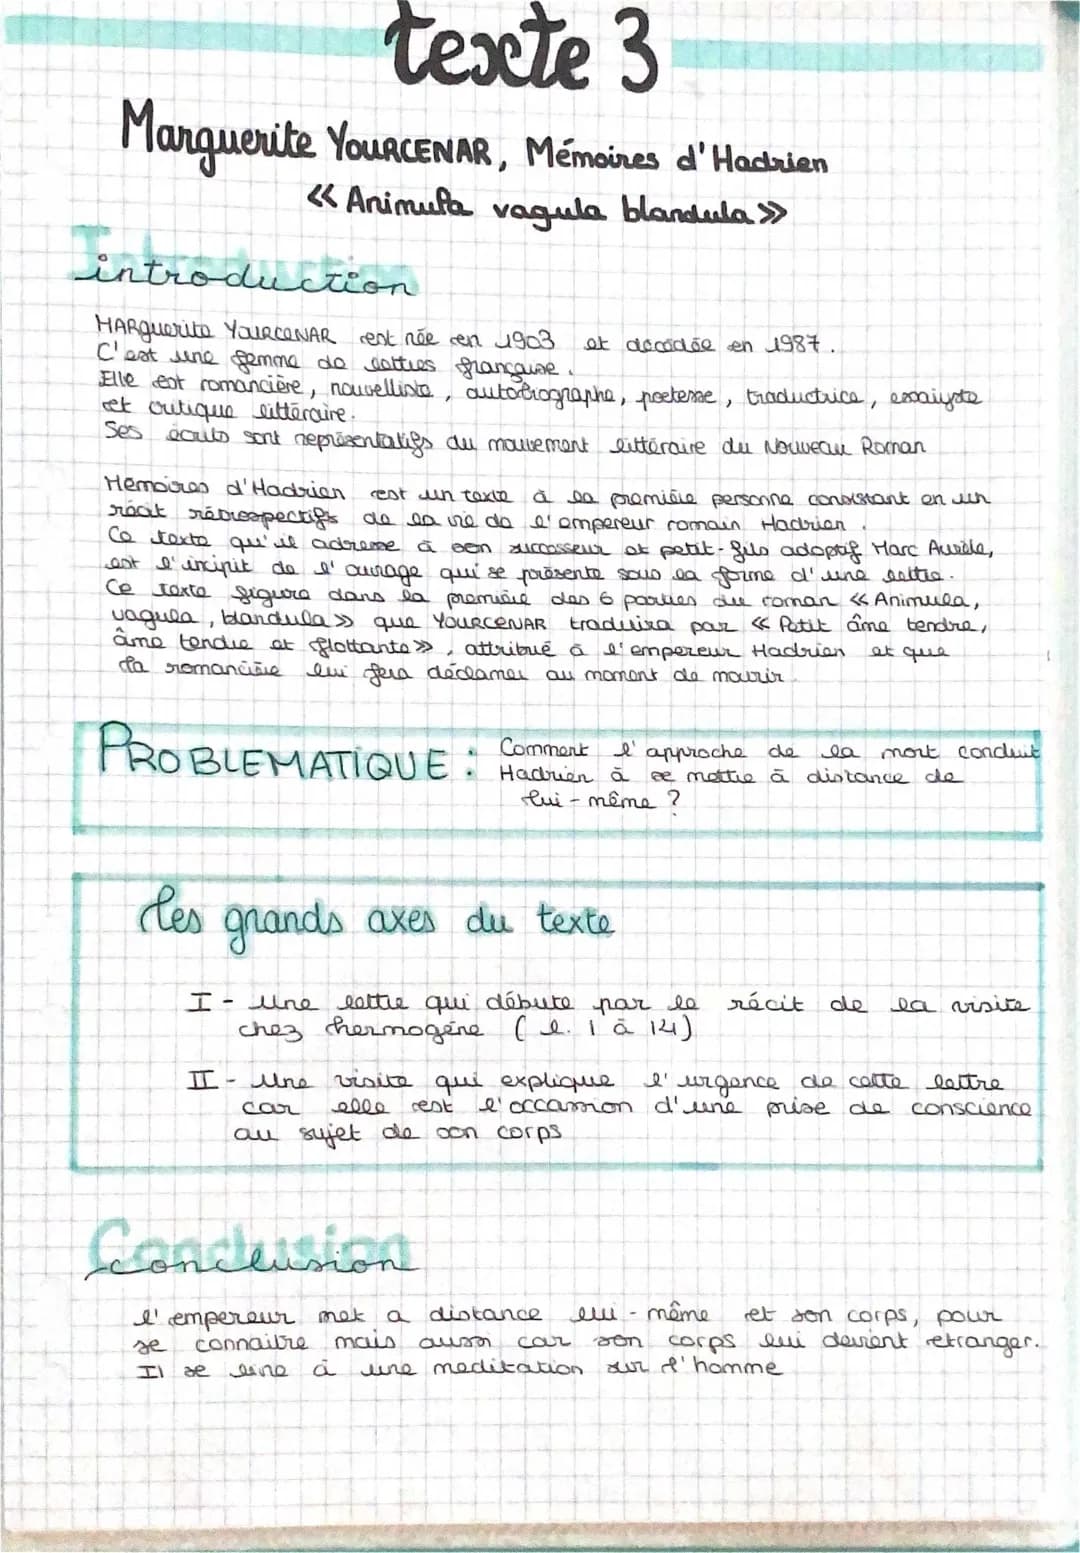 texte 3
Marguerite YOURCENAR, Mémoires d'Hadrien
<< Animula vagula blandula >>
Introduction
introduction
MARguerite YOURCENAR est née en 1903 et décédée en 1987.
C'est une femme de lettres française.
Elle est romancière, nouvelliste, autobiographe, poetesse, traductrice, essaiyste
et critique littéraire.
Ses écrits sont représentatifs du mouvement littéraire du Nouveau Roman
Memoires d'Hadrien est un texte à la première personne consistant en un
récit rétrospectifs de la vie de l'empereur romain Hadrien.
Ce texte qu'il adresse à son successeur et petit-fils adoptif Marc Aurèle,
est l'incipit de l'ouvrage qui se présente sous la forme d'une lettre.
Ce texte figure dans la première des 6 parties du roman << Animula,
vagula, blandula >> que YOURCENAR traduira par << Petit âme tendre,
âme tendre et flottante >>, attribué à l'empereur Hadrian et que
la romancière lui fera déclamer au moment de mourir.
PROBLEMATIQUE : Comment l'approche de la mort conduit
Hadrien à se mettre à distance de
lui-même ?
Les grands axes du texte
I - Une lettre qui débute par le récit de la visite
chez hermogène (l. 1 à 14)
II - Une visite qui explique l'urgence de cette lettre
car elle est l'occassion d'une prise de conscience
au sujet de son corps
Conclusion
conclusion
l'empereur met a distance lui-même et son corps, pour
se connaitre mais aussi car son corps lui devient etranger.
Il se livre à une meditation sur l'homme